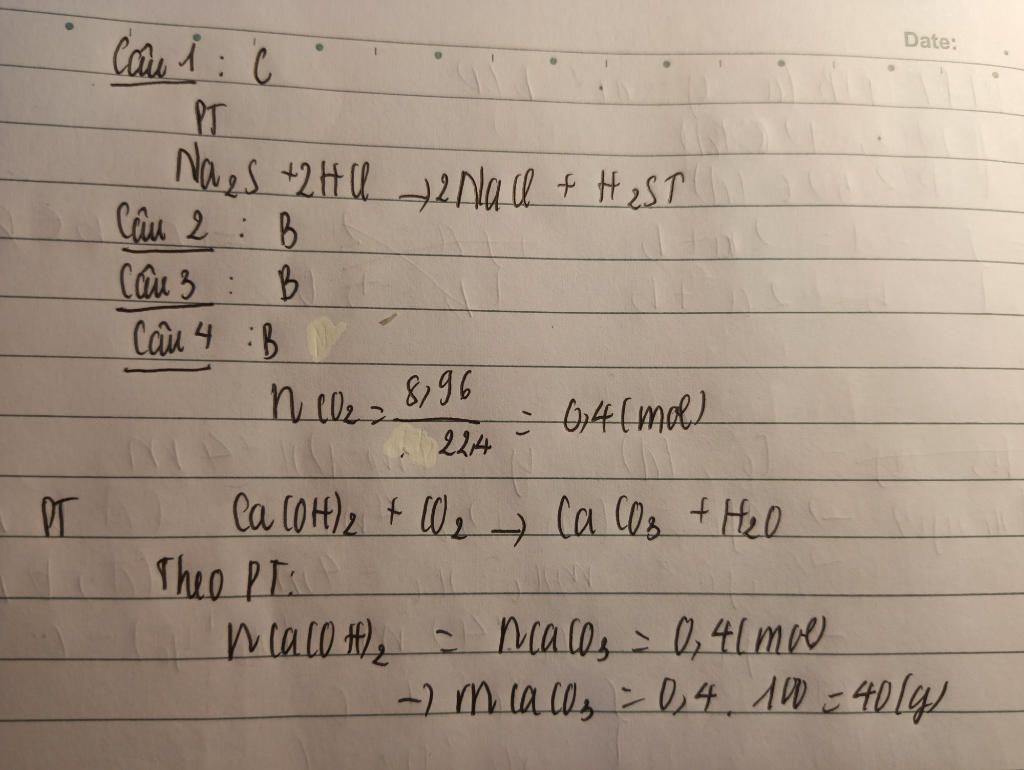 Date:
Câu 1 : C
PT
Na2S +2HCl →2NaCl + H2S↑
Câu 2 : B
Câu 3 : B
Câu 4 : B
nCO2 = 8,96 / 22,4 = 0,4 (mol)
PT Ca(OH)2 + CO2 → CaCO3 + H2O
Theo PT:
nCa(OH)2 = nCaCO3 = 0,4 (mol)
→ mCaCO3 = 0,4 . 100 = 40 (g)